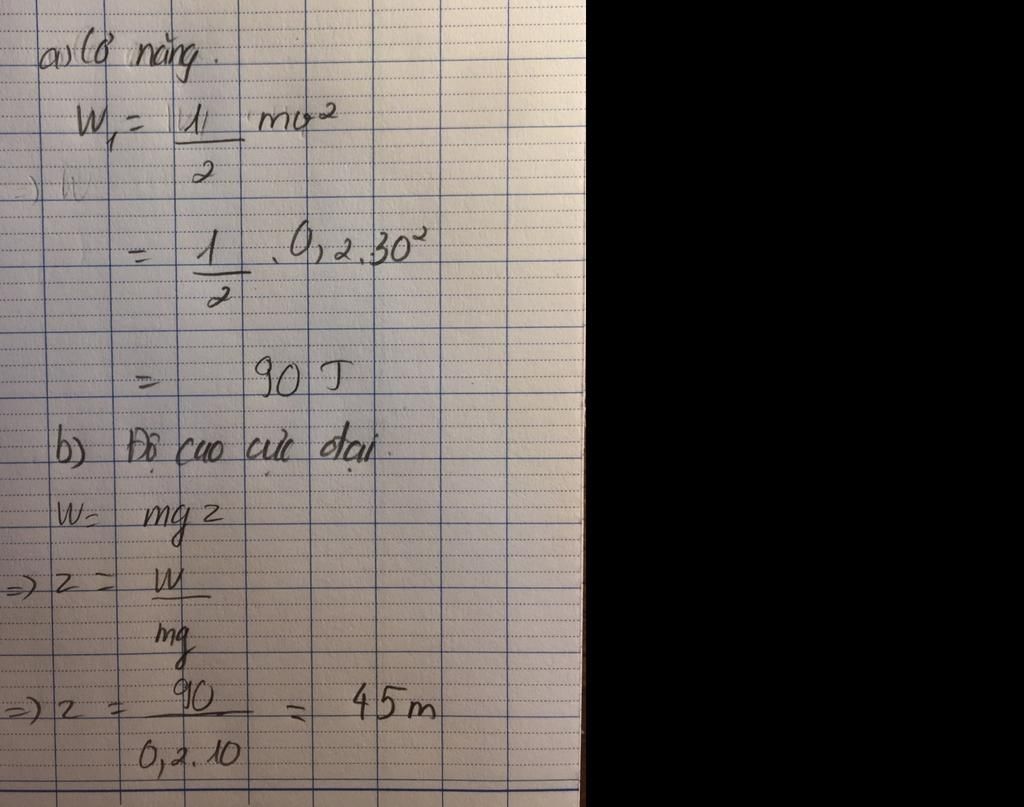 a) Cơ năng.
W₁ = 1/2 mv²
=) W
= 1/2 . 0,2.30²
= 90 J
b) Độ cao cực đại.
W = mgz
=) z = W/mg
=) z = 90/0,2.10 = 45m